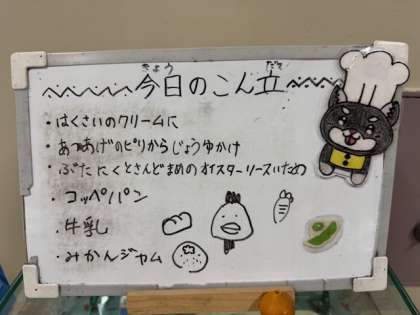 きょう だて
今日のこん立
・はくさいのクリームに
・あつあげのピリからじょうゆかけ
・ぶたにくとさんどまめのオイスターソースいため
・コッペパン
・牛乳
・みかんジャム